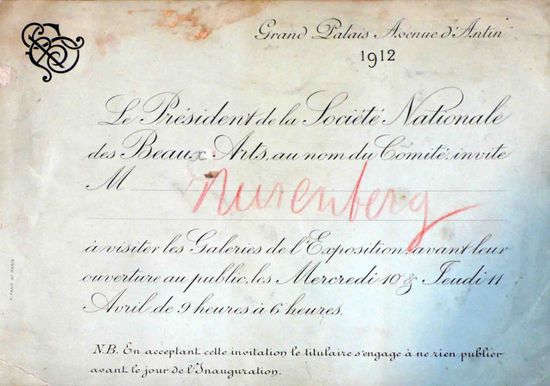 Grand Palais Avenue d'Antin
1912
Le Président de la Société Nationale
des Beaux Arts, au nom du Comité, invite
M Nurenberg
à visiter les Galeries de l'Exposition, avant leur
ouverture au public, les Mercredi 10 & Jeudi 11
Avril de 9 heures à 6 heures.
N.B. En acceptant cette invitation le titulaire s'engage à ne rien publier
avant le jour de l'Inauguration.